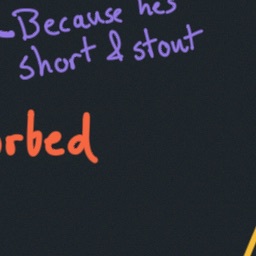 -Because he's
short & stout
orbed